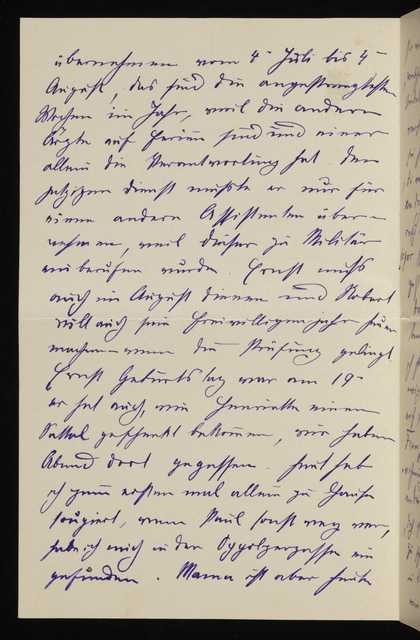 übernehmen vom 4- Juli bis 4-
August, das sind die angestrengtesten
Wochen im Jahr, weil die andern
Ärzte auf Ferien sind und einer
allein die Verantwortung hat. Den
jetzigen Dienst mußte er nur für
einen andern Assistenten über-
nehmen, weil dieser zu Militär
einberufen wurde. Ernst muß
auch im August dienen und Robert
will auch sein Freiwilligenjahr
machen wenn die Prüfung gelingt
Ernst Geburtstag war am 19-
er hat auch, wie Henriette einen
Sattel geschenkt bekommen, wir haben
Abend dort gegessen. Heut hab
ich zum ersten mal allein zu Hause
soupiert, wenn Paul sonst weg war,
habe ich mich in der Oppolzergasse ein
gefunden. Mama ist aber heute